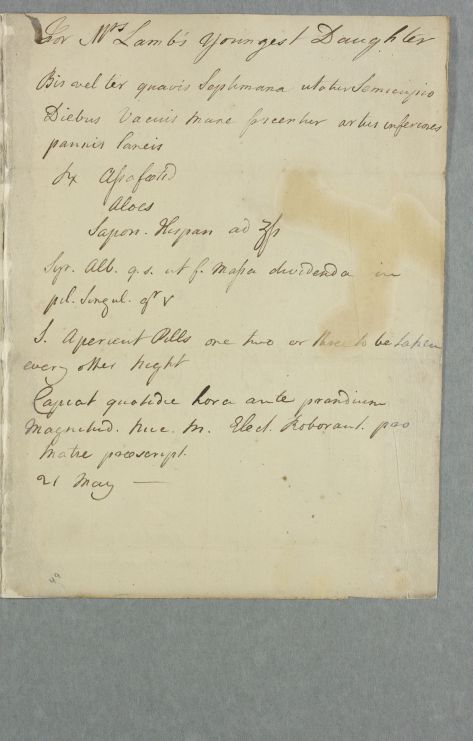 For Mrs Lamb's Youngest Daughter
Bis vel ter quavis Septimana utatur Semicupio
Diebus Vacuis mane fricentur artus inferiores
pannis laneis
Rx Assafoetid
Aloes
Sapon. Hispan aa ʒss
Syr. Alb. q.s. ut f. Massa dividenda in
pil. Singul. gr V
S. Aperient Pills one two or three to be taken
every other night
Capiat quotidie hora ante prandium
Magnitud. Nuc. M. Elect. Roborant. pro
Matre praescript.
21 May —
49